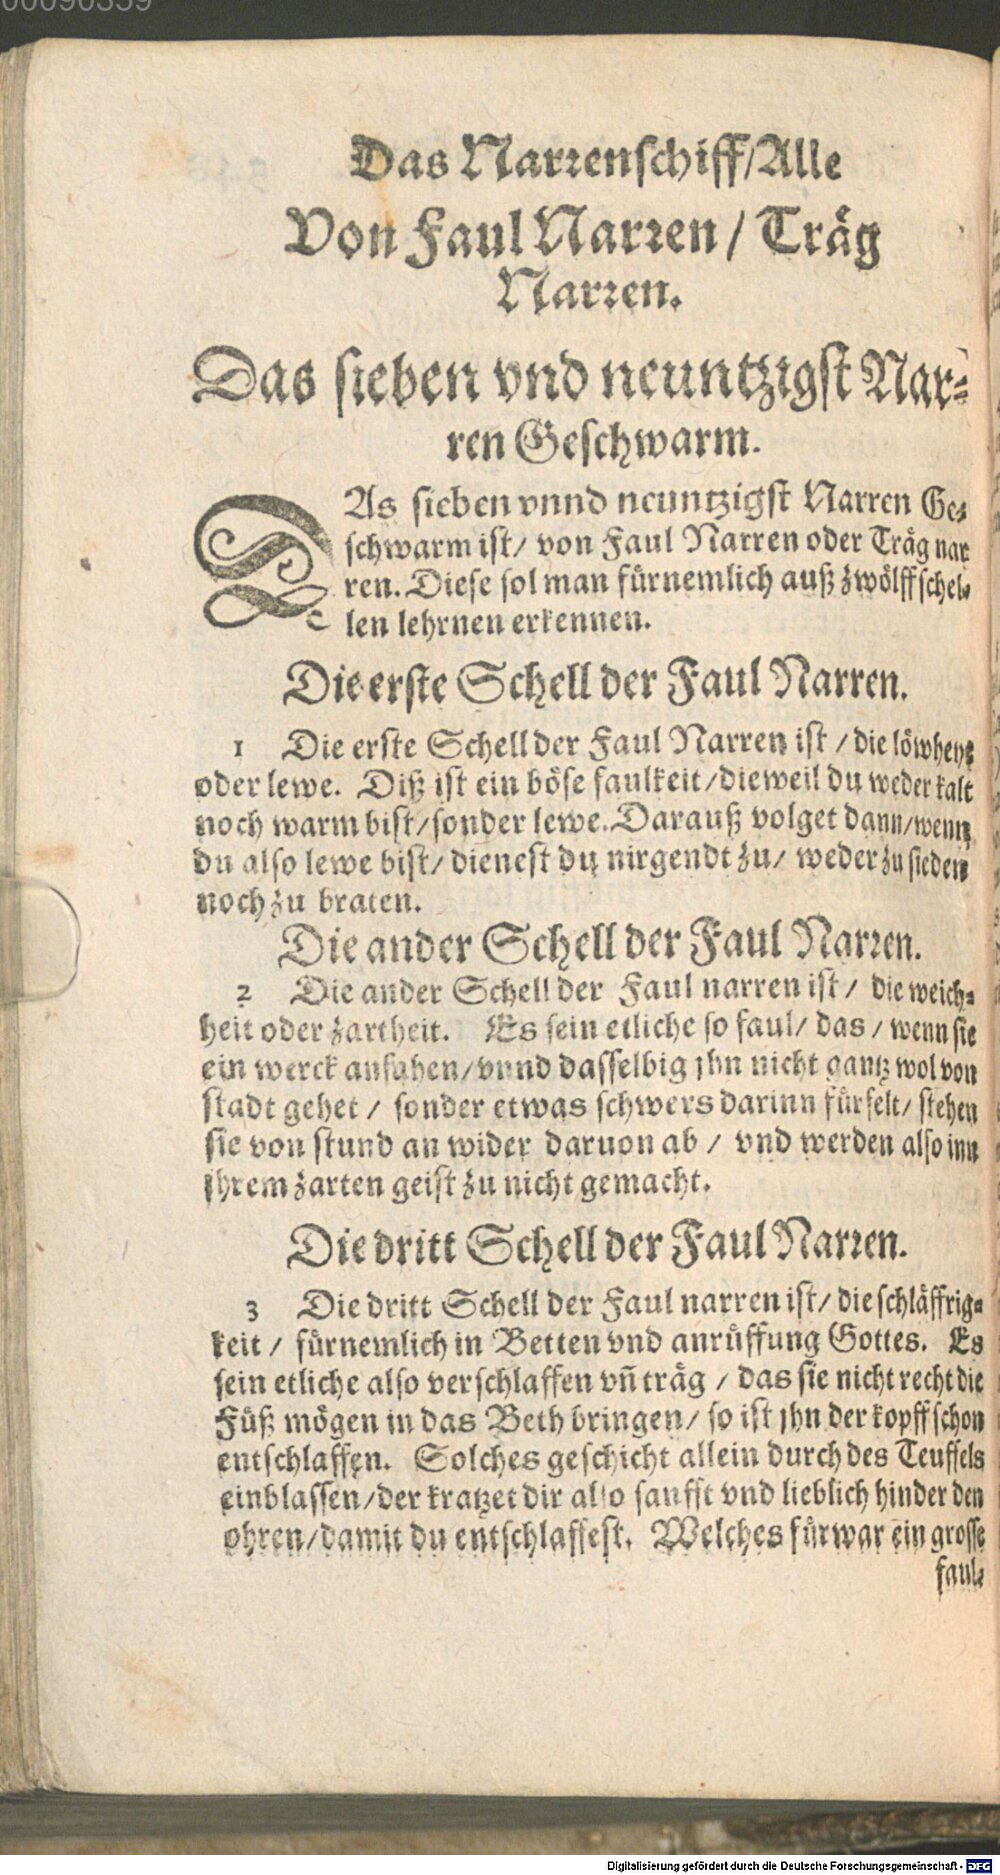 00090359
Das Narrenschiff/Alle
Von Faul Narren / Träg
Narren.
Das sieben vnd neuntzigst Nar⸗
ren Geschwarm.
DAs sieben vnnd neuntzigst Narren Ge⸗
schwarm ist/ von Faul Narren oder Träg nar
ren. Diese sol man fürnemlich auß zwölff schel⸗
len lehrnen erkennen.
Die erste Schell der Faul Narren.
1 Die erste Schell der Faul Narren ist / die löwheyt
oder lewe. Diß ist ein böse faulkeit/dieweil du weder kalt
noch warm bist/sonder lewe. Darauß volget dann/wenn
du also lewe bist/ dienest du nirgendt zu/ weder zu sieden
noch zu braten.
Die ander Schell der Faul Narren.
2 Die ander Schell der Faul narren ist / die weich⸗
heit oder zartheit. Es sein etliche so faul/ das / wenn sie
ein werck anfahen/vnnd dasselbig jhn nicht gantz wol von
stadt gehet / sonder etwas schwers darinn fürfelt/ stehen
sie von stund an wider daruon ab / vnd werden also inn
jhrem zarten geist zu nicht gemacht.
Die dritt Schell der Faul Narren.
3 Die dritt Schell der Faul narren ist/ die schläffrig⸗
keit / fürnemlich in Betten vnd anrüffung Gottes. Es
sein etliche also verschlaffen vñ träg / das sie nicht recht die
Füß mögen in das Beth bringen/ so ist jhn der kopff schon
entschlaffen. Solches geschicht allein durch des Teuffels
einblassen/der kratzet dir also sanfft vnd lieblich hinder den
ohren/damit du entschlaffest. Welches fürwar ein grosse
faul⸗
Digitalisierung gefördert durch die Deutsche Forschungsgemeinschaft - DFG